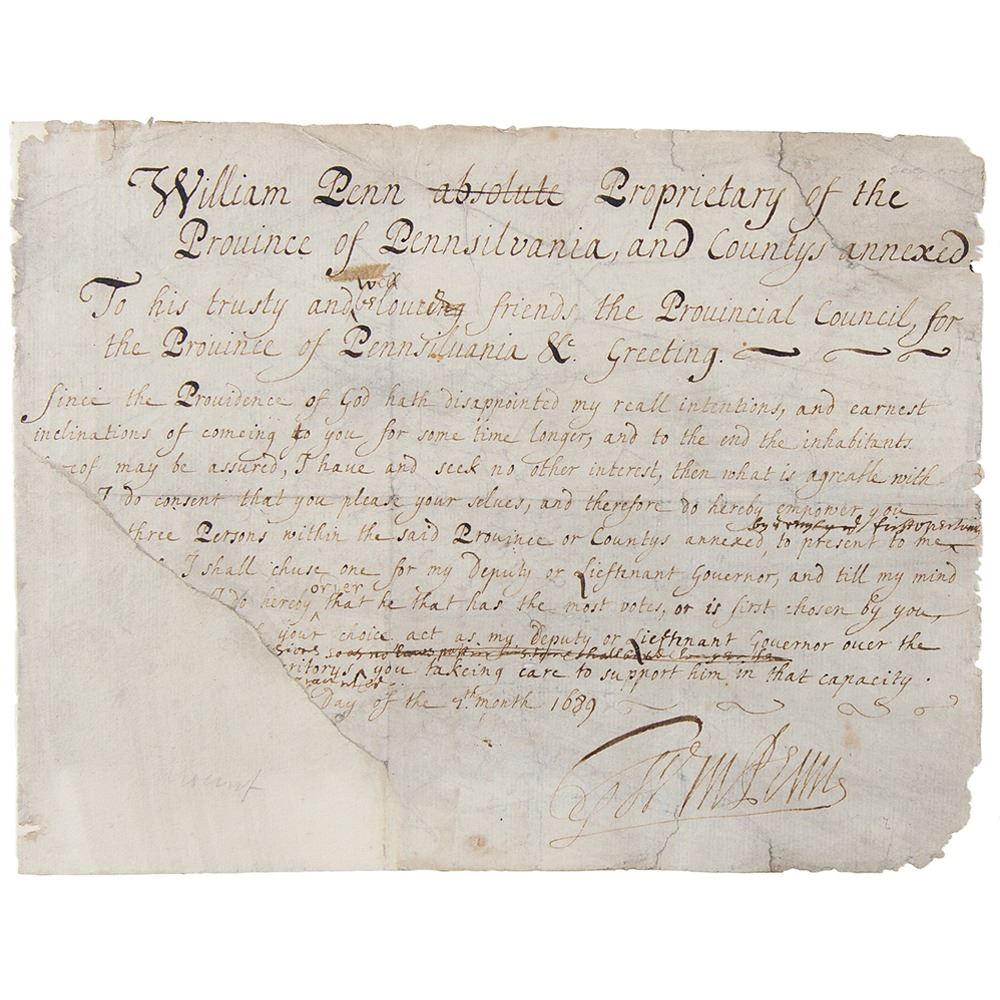 William Penn absolute Proprietary of the
Province of Pennsilvania, and Countys annexed.
well
To his trusty and beloueing friends the Provincial Council, for
the Province of Pennsilvania &c. Greeting.
Since the Providence of God hath disappointed my reall intentions, and earnest
inclinations of comeing to you for some time longer, and to the end the inhabitants
may be assured, I have and seek no other interest, then what is agreable with
I do consent that you please your selves, and therefore do hereby empower you
three Persons within the said Province or Countys annexed, to present to me
I shall chuse one for my Deputy or Lieftenant Governor, and till my mind
order
I do hereby that he that has the most votes, or is first chosen by you,
your choice act as my Deputy or Lieftenant Governor over the
you takeing care to support him in that capacity.
Day of the month 1689
Wm Penn